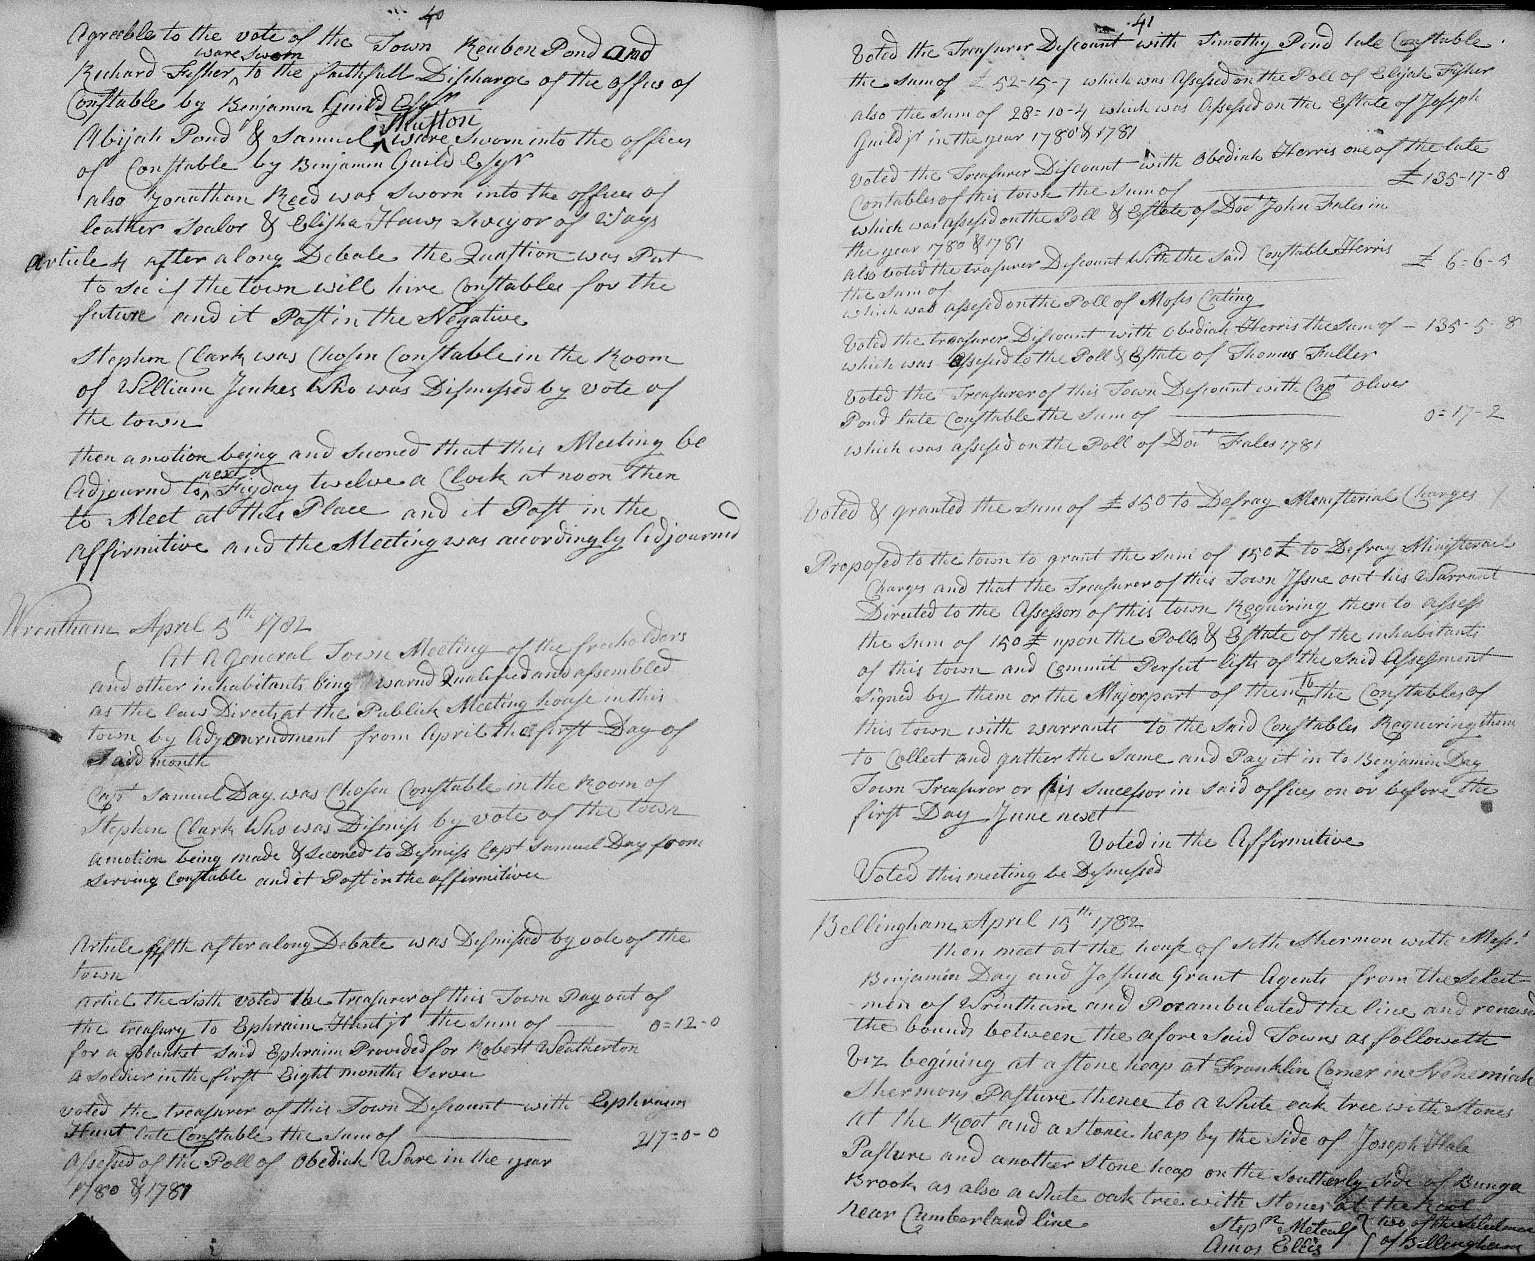 40
Agreeble to the vote of the Town Reuben Pond and
ware sworn
Richard Fisher ^ to the faithfull Discharge of the offies of
Constable by Benjamin Guild Esqr
Abijah Pond & Samuel ^ ware Sworn into the offies
of Constable by Benjamin Guild Esqr
also Jonathan Reed was Sworn into the offies of
leather Sealor & Elisha Haws Sveyor of Ways
Article 4 after a long Debate the Quastion was Put
to see if the town will hire Constables for the
future and it Past in the Negative
Stephen Clark was Chosen Constable in the Room
of William Jenkes Who was Dismised by vote of
the town
then a motion being and Seconed that this Meeting be
next
Adjournd to ^ Fryday twelve a Clock at noon then
to Meet at this Place and it Past in the
affirmitive and the Meeting was accordingly Adjourned
Wrentham April 5th 1782
At A General Town Meeting of the freeholders
and other inhabitants being warnd Qualified and assembled
as the law Directs at the Publick Meeting house in this
town by Adjournment from April the first Day of
Said month
Capt Samuel Day was Chosen Constable in the Room of
Stephen Clark Who was Dismiss by vote of the town
a motion being made & Seconed to Dismiss Capt Samuel Day from
Serving Constable and it Past in the affirmitive
Article fifth after a long Debate was Dismissed by vote of the
town
artiel the Sixth voted the treasurer of this Town Pay out of
the treasury to Ephraim Hunt jr the sum of 0=12-0
for a Blanket Said Ephraim Provided for Robert Weatherton
a Soldier in the first Eight months Servec
voted the treasurer of this Town Discount with Ephraim
Hunt late Constable the sum of 217=0-0
assessed of the Poll of Obediah Ware in the year
1780 & 1781
41
Voted the Treasurer Discount with Timothy Pond late Constable
the sum of £52-15-7 which was Assesed on the Poll of Elijah Fisher
also the sum of 28=10-4 which was assessed on the Estate of Joseph
Guild jr in the year 1780 & 1781
Voted the Treasurer Discount with Obediah Herris one of the late
Contables of this town the sum of £135-17-8
which was assesed on the Poll & Estate of Doct John Fales in
the year 1780 & 1781
also voted the treasurer Discount With the Said Constable Herris
the sum of £6=6-5
which was assesed on the Poll of Moses Cuting
Voted the treasurer Discount with Obediah Herris the sum of - 135-5-8
which was assesed to the Poll & Estate of Thomas Fuller
Voted the Treasurer of this Town Discount with Capt Oliver
Pond late Constable the sum of 0=17-2
which was assesed on the Poll of Doct Fales 1781
Voted & granted the sum of £150 to Defray Menisterial Charges
Proposed to the town to grant the sum of 150£ to Defray Ministeraiel
Charges and that the Treasurer of this Town Issue out his Warrant
Directed to the Assessors of this town Requiring them to assess
the sum of 150£ upon the Polls & Estate of the inhabitants
of this town and Commit Perfect lists of the Said Assessment
Signed by them or the Major part of them to the Constables of
this town with warrants to the Said Constables Requiering them
to Collect and gather the Same and Pay it in to Benjamin Day
Town Treasurer or his Successor in Said offices on or before the
first Day June next
Voted in the Affirmitive
Voted this meeting be Dismissed
Bellingham April 15th 1782
then meet at the house of Seth Shermon with Messrs
Benjamin Day and Joshua Grant Agents from the Select
men of Wrintham and Perambulated the line and renewed
the bounds between the afore said Towns as followeth
Viz begining at a stone heap at Franklin Corner in Nehemiah
Shermons Pasture thence to a White oak tree with Stones
at the Root and a stone heap by the side of Joseph Hale
Pasture and another Stone heap on the Southerly side of Bunga
Brook as also a white oak tree with Stones at the Root
near Cumberland line
Stepn Metcalf } two of the selectmen
Amos Ellis } of Bellingham